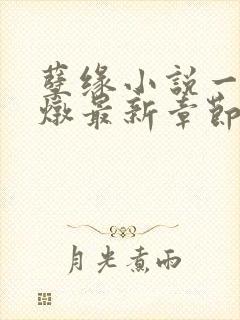 孽缘小説一
燉最新章節
月光煮雨